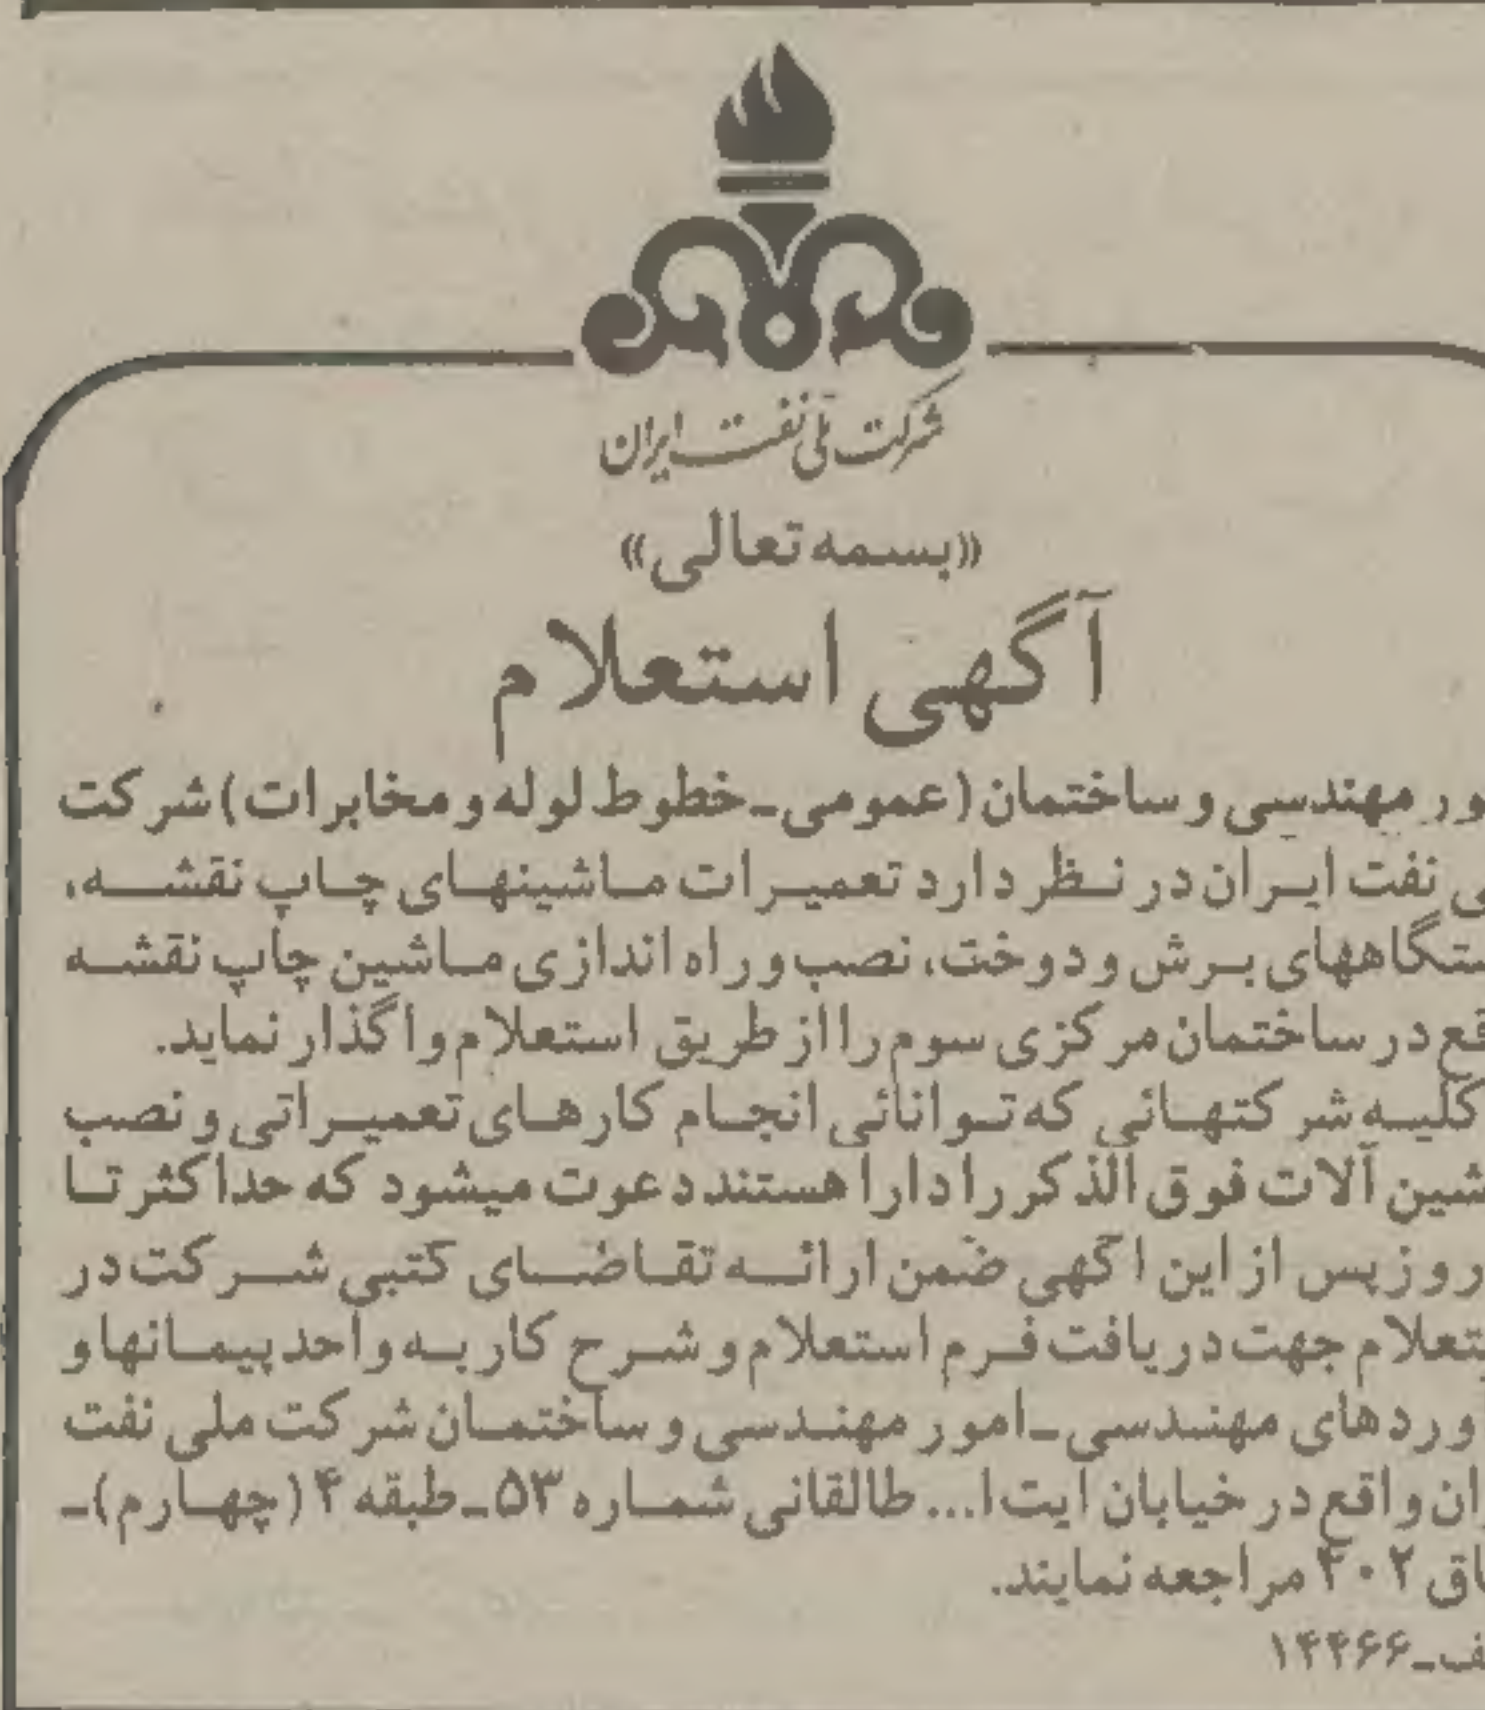 شرکت ملی نفت ایران
«بسمه تعالی»
آگهی استعلام
ور مهندسی و ساختمان (عمومی ـ خطوط لوله و مخابرات) شرکت
ی نفت ایران در نظر دارد تعمیرات ماشینهای چاپ نقشه،
ستگاههای برش و دوخت، نصب و راه اندازی ماشین چاپ نقشه
قع در ساختمان مرکزی سوم را از طریق استعلام واگذار نماید.
کلیه شرکتهائی که توانائی انجام کارهای تعمیراتی و نصب
شین آلات فوق الذکر را دارا هستند دعوت میشود که حداکثر تا
روز پس از این اگهی ضمن ارائه تقاضای کتبی شرکت در
تعلام جهت دریافت فرم استعلام و شرح کار به واحد پیمانها و
وردهای مهندسی ـ امور مهندسی و ساختمان شرکت ملی نفت
ران واقع در خیابان ایت ا... طالقانی شماره ۵۳ ـ طبقه ۴ (چهارم) ـ
اق ۴۰۲ مراجعه نمایند.
ف ـ ۱۴۴۶۶